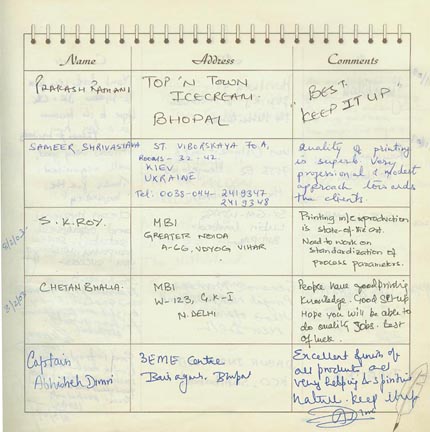 Name Address Comments
PRAKASH RATHANI
TOP 'N TOWN
ICECREAM
BHOPAL
"BEST
KEEP IT UP"
SAMEER SHRIVASTAVA
ST. VIBORSKAYA 70 A,
ROOMS - 32 - 42
KIEV
UKRAINE
Tel: 0038-044- 2419347
2419348
Quality of printing
is superb. very
professional & modest
approach towards
the clients.
S. K. ROY.
MBI
GREATER NOIDA
A-66, UDYOG VIHAR
Printing reproduction
is state-of-the art.
Need to work on
standardization of
process parameters.
CHETAN BHALLA.
MBI
W-123, G.K-I
N. DELHI
People have good printing
Knowledge. Good set-up
Hope you will be able to
do quality Jobs. best
of luck.
Captain
Abhishek
3EME Centre
Bairagarh, Bhopal
Excellent finish of
all products and
very helping &
nature. keep it up